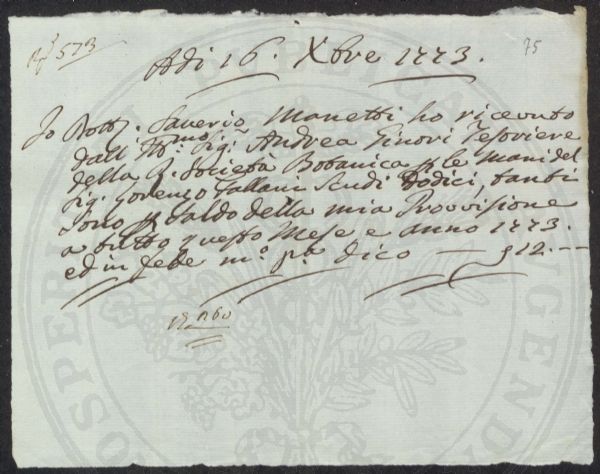 573
75
Adi 16. Xbre 1773.
Io Dott. Saverio Manetti ho ricevuto
dall' Ill.mo Sig. Andrea Ginori Tesoriere
della R. Società Botanica p le Mani del
Sig. Lorenzo Scudi Dodici, tanti
sono p saldo della mia Provvisione
a tutto questo Mese e anno 1773.
ed in fede m.o p.a dico — 12. —